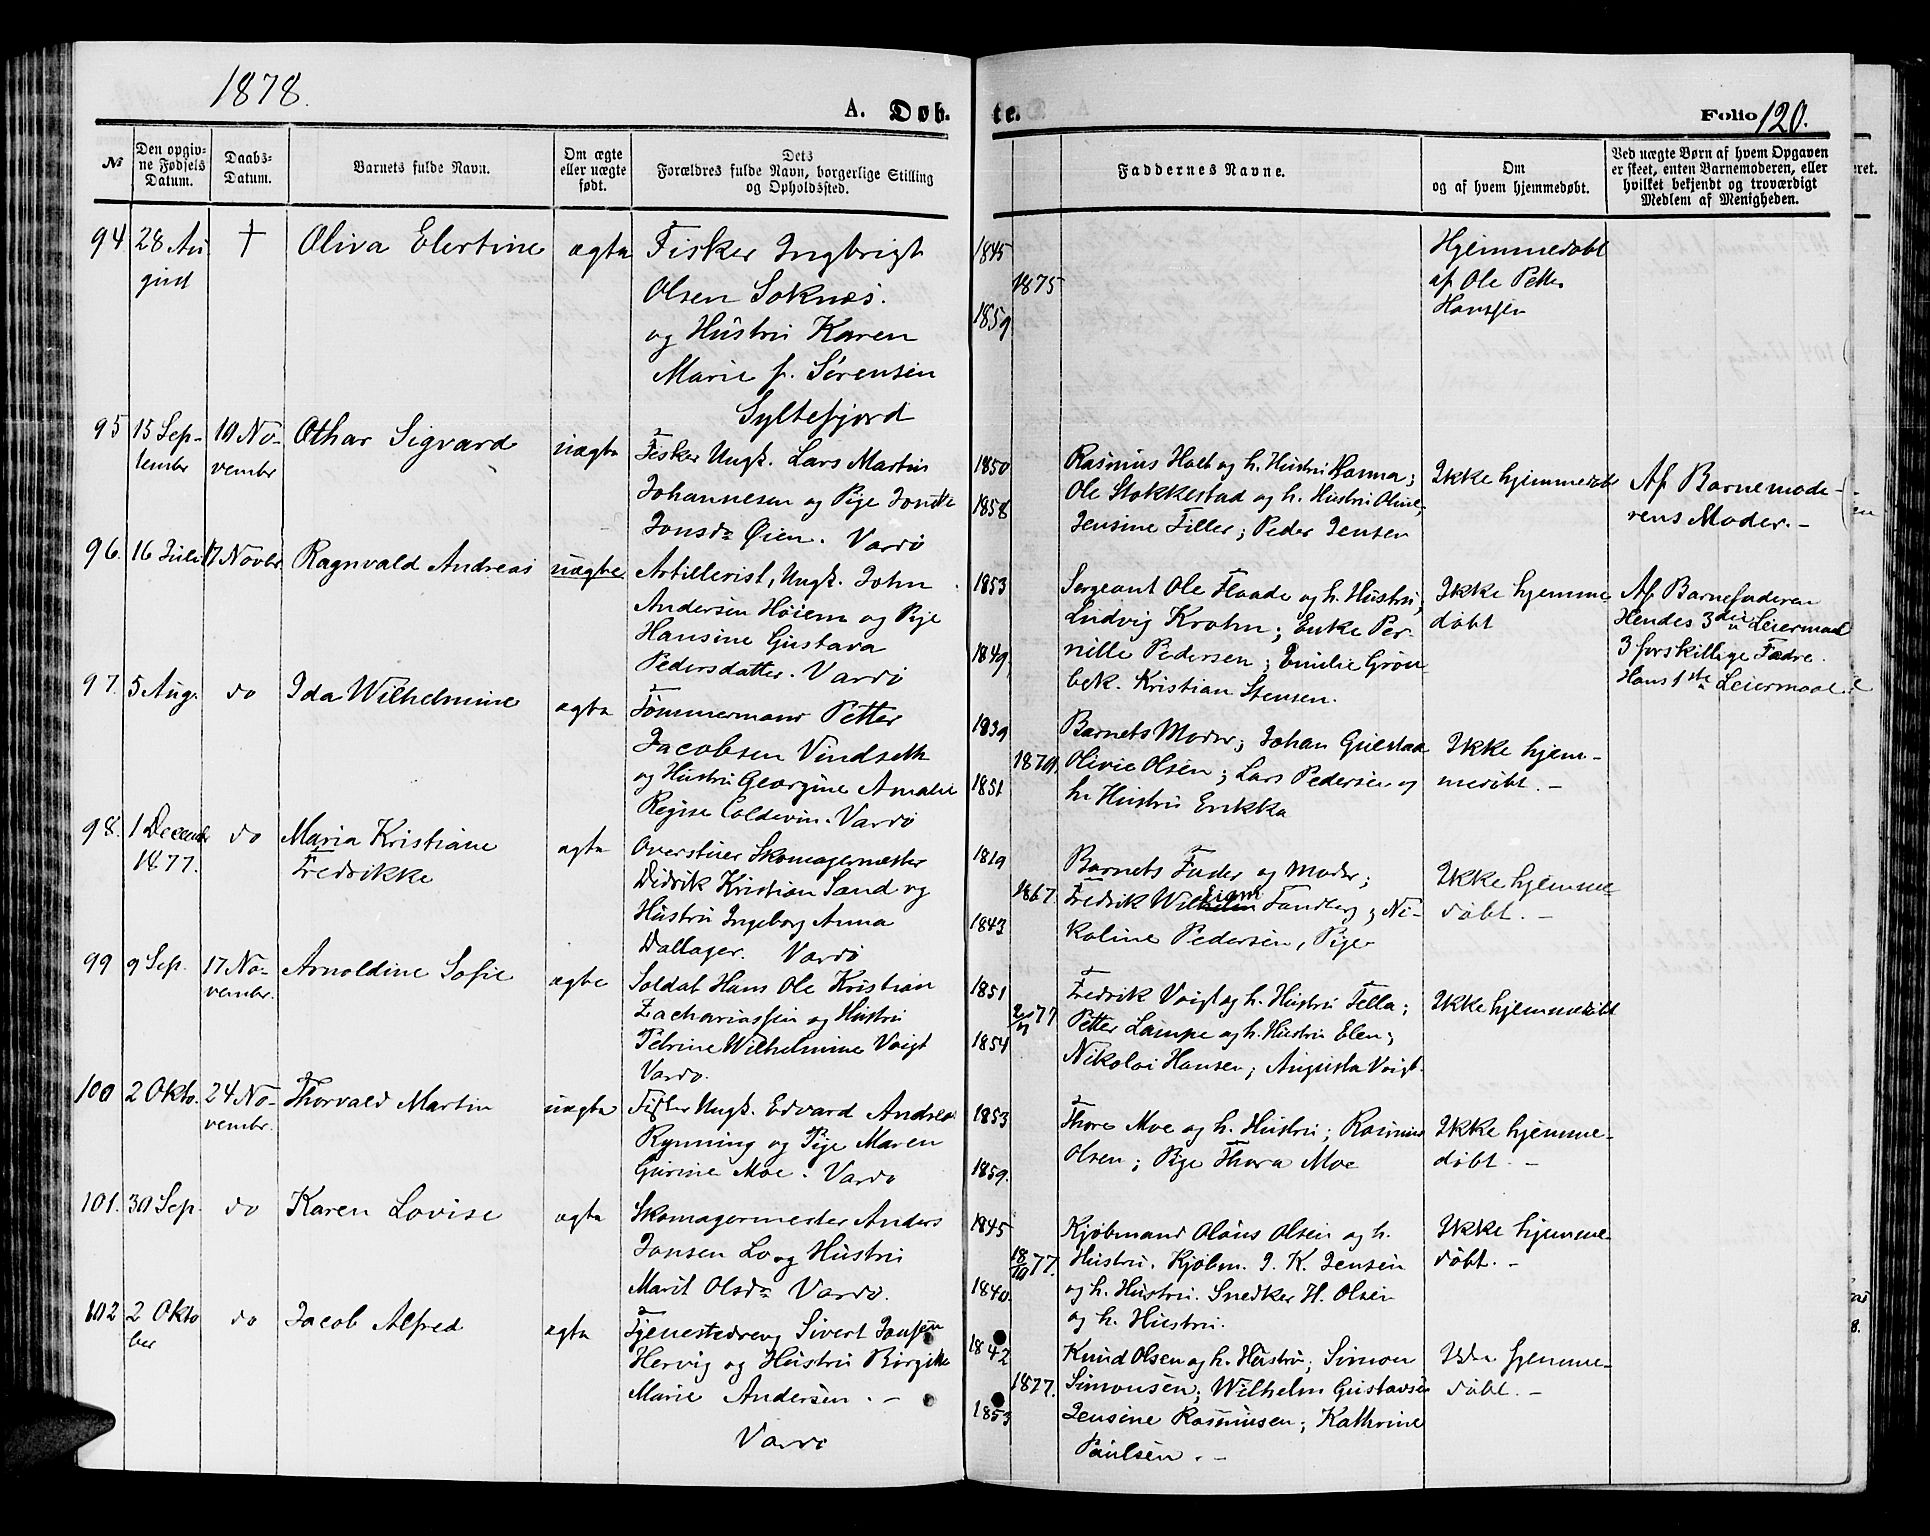 1878.
A. Døb.
te.
Folio 120.
№
Den opgivne Fødsels Datum.
Daabs-Datum.
Barnets fulde Navn.
Om ægte eller uægte født.
Dets Forældres fulde Navn, borgerlige Stilling og Opholdssted.
Faddernes Navne.
Om og af hvem hjemmedøbt.
Ved uægte Børn af hvem Opgaven er skeet, enten Barnemoderen, eller hvilket bekjendt og troværdigt Medlem af Menigheden.
94 28 Au
gust
†
Oliva Elertine
ægte
Fisker Ingbrigt
Olsen Soknæs.
og Hustru Karen
Marie f. Sørensen
Syltefjord
1845
1875
1859
Hjemmedøbt
af Ole Petter
Hanssen
95 15 Sep-
tember
10 No-
vembr
Othar Sigvard
uægte
Fisker Ungk. Lars Martin
Johannesen og Pige
Jonsdr Øien. Vardö
1850
1858
Rasmus Holt og h. Hustru Hanna;
Ole Stokkestad og h. Hustru Oline;
Jensine Filler; Peder Jensen
Ikke hjemmedøbt
Af Barnemode-
rens Moder. -
96. 16 Juli 17 Novbr
Ragnvald Andreas
uægte
Artillerist, Ungk. John
Andersen Høiem og Pige
Hansine Gustava
Pedersdatter. Vardö
1853
1849
Sergeant Ole Flaade og h. Hustru;
Ludvig Krohn; Enke Per-
nille Pedersen; Emilie Grön-
bek. Kristian Stensen.
Ikke hjemme
døbt
Af Barnefaderen
Hendes 3die Leiermaal
3 forskillige Fædre.
Hans 1ste Leiermaal
97. 5 Aug. do
Ida Wilhelmine
ægte
Tømmermand Petter
Jacobsen Vindseth
og Hustru Georgine Amalie
Regise Coldevin. Vardö
1839
1870.
1851
Barnets Moder; Johan Gustav
Olivie Olsen; Lars Pedersen og
h. Hustru Erikka
Ikke hjem-
medøbt. -
98. 1 Decembr
1877.
do
Maria Kristiane
Fredrikke
ægte
Overstuer Skomagermester
Didrik Kristian Sand og
Hustru Ingeborg Anna
Dallager. Vardö
1819
1867.
1843
Barnets Fader og Moder;
Fredrik Wilhelm Fandberg; Ni-
koline Pedersen, Pige
Ikke hjemme
døbt. -
99 9 Sep. 17 No-
vembr.
Arnoldine Sofie
ægte
Soldat Hans Ole Kristian
Zachariassen og Hustru
Petrine Wilhelmine Voigt
Vardö.
1851
77
1854
Fredrik Voigt og h. Hustru Tella;
Petter Lampe og h. Hustru Elen;
Nikolai Hansen; Augusta Voigt.
Ikke hjemmedøbt
100 2 Okto. 24 No-
vembr.
Thorvald Martin
uægte
Fisker Ungk. Edvard Andreas
Rynning og Pige Maren
Gurine Moe. Vardö
1853
1859.
Thore Moe og h. Hustru; Rasmus
Olsen; Pige Thora Moe
Ikke hjemme-
døbt. -
101. 30 Sep. do
Karen Lovise
ægte
Skomagermester Anders
Jonsen Lo og Hustru
Marit Olsdr Vardö.
1845
18/10 77.
1840.
Kjøbmand Olaus Olsen og h.
Hustru. Kjøbm. J. K. Jensen
og h. Hustru. Snedker H. Olsen
og h. Hustru.
Ikke hjemme
døbt. -
102 2 Okto
ber
do
Jacob Alfred
ægte
Tjenestedreng Sivert Jonsen
Hervig og Hustru Birgitte
Marie Andersen. -
Vardö
1842
1877.
1853
Knud Olsen og h. Hustru; Simon
Simonsen; Wilhelm Gustavsen
Jensine Rasmusen; Kathrine
Paulsen. -
Ikke hjemme-
døbt. -